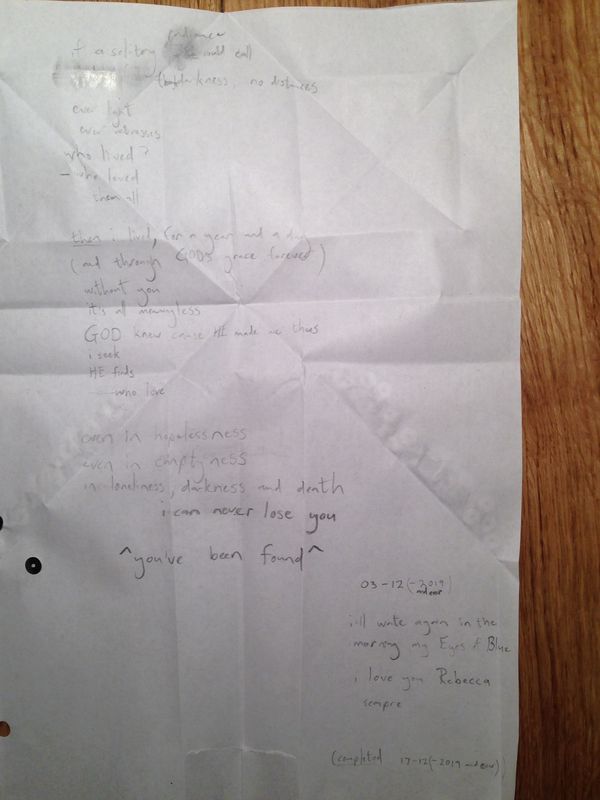 if a solitary could call
darkness, no distances
ever light
ever witnesses
who lived?
- who loved
them all
then i lived, for a year and a day
(and through GODS grace forever)
without you
it's all meaningless
GOD knew cause HE made we thus
i seek
HE finds
who love
even in hopelessness
even in emptyness
in loneliness, darkness and death
i can never lose you
^you've been found^
03-12(-2019
and ever)
i'll write again in the
morning my Eyes of Blue
i love you Rebecca
sempre
(completed 17-12(-2019 and ever))